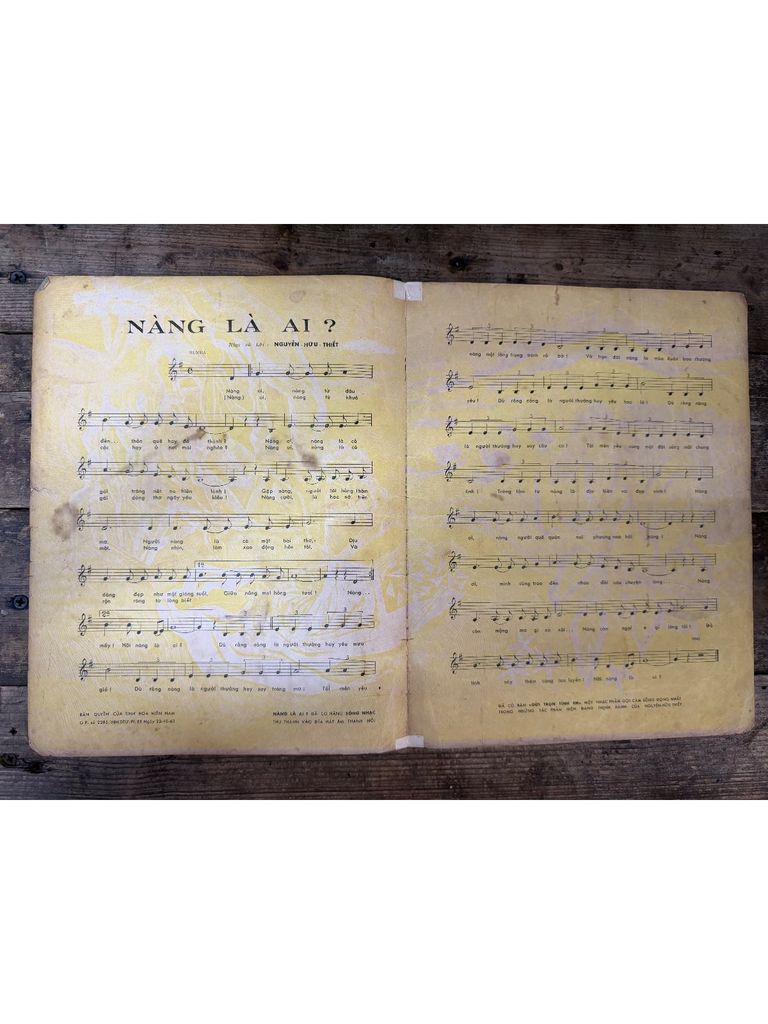 NÀNG LÀ AI ?
Nhạc và Lời : NGUYỄN - HỮU - THIẾT
RUMBA
Nàng ơi, nàng từ đâu
(Nàng) ơi, nàng từ khuê
đến... thôn quê hay đô thành ? Nàng ơi, nàng là cô
các hay ở nơi mái nghèo ? Nàng ơi, nàng là cô
gái trắng nết na hiền lành ? Gặp nàng, người tôi bỗng thần
gái đang thơ ngây yêu kiều ? Nàng cười, là hoa nở trên
mơ. Người nàng là cả một bài thơ, Dịu
môi. Nàng nhìn, làm xao động hồn tôi. Và
dàng đẹp như một giòng suối. Giữa nắng mai hồng tươi ! Nàng...
rộn ràng từ lòng biết
mấy ! Hỡi nàng là ai ? Dù rằng nàng là người thường hay yêu mưu
giả ! Dù rằng nàng là người thường hay say trăng mơ ; Tôi mến yêu
BẢN QUYỀN CỦA TINH HOA MIỀN NAM
NÀNG LÀ AI ? ĐÃ DO HÃNG SÓNG NHẠC
THU THANH VÀO DĨA HÁT
nàng một lòng trọng tình vô bờ ! Và trọn đời nàng là mùa Xuân bao thương
yêu ! Dù rằng nàng là người thường hay yêu hoa lá ! Dù rằng nàng
là người thường hay say cây cỏ ! Tôi mến yêu nàng một đời sống mãi chung
tình ! Trong tâm tư nàng là
ơi, nàng người quê quán nơi phương nao hỡi nàng ! Nàng
ơi, mình cùng trao đến nhau đôi câu chuyện lòng... Nàng
còn mộng mơ gì xa xôi... Nàng còn ngại gì lòng tôi !
tình này thêm càng lưu luyến ! Hỡi nàng là ai ?
ĐÃ CÓ BÁN «GỬI TRỌN TÌNH EM» MỘT NHẠC PHẨM GỢI CẢM SỐNG ĐỘNG NHẤT
TRONG NHỮNG TÁC PHẨM HIỆN ĐANG THỊNH HÀNH CỦA NGUYỄN-HỮU-THIẾT